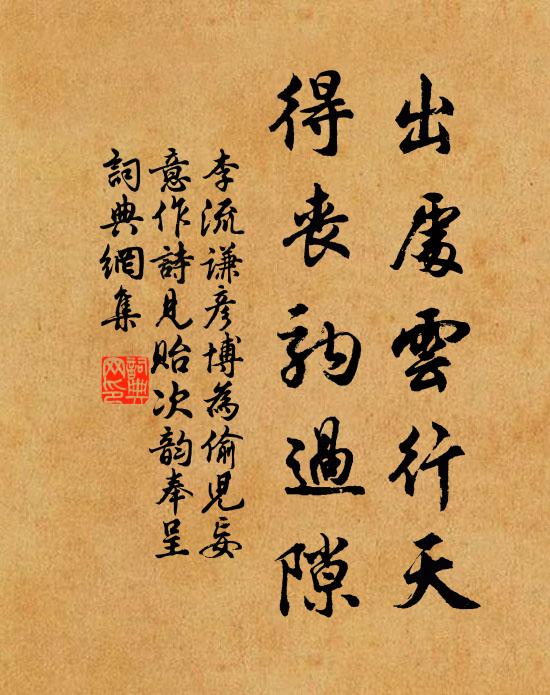 出處雲行天
得喪駒過隙
李流谦彥博為偷兒妄
意作詩見貽次韵奉呈
詞典網集
詞典网印